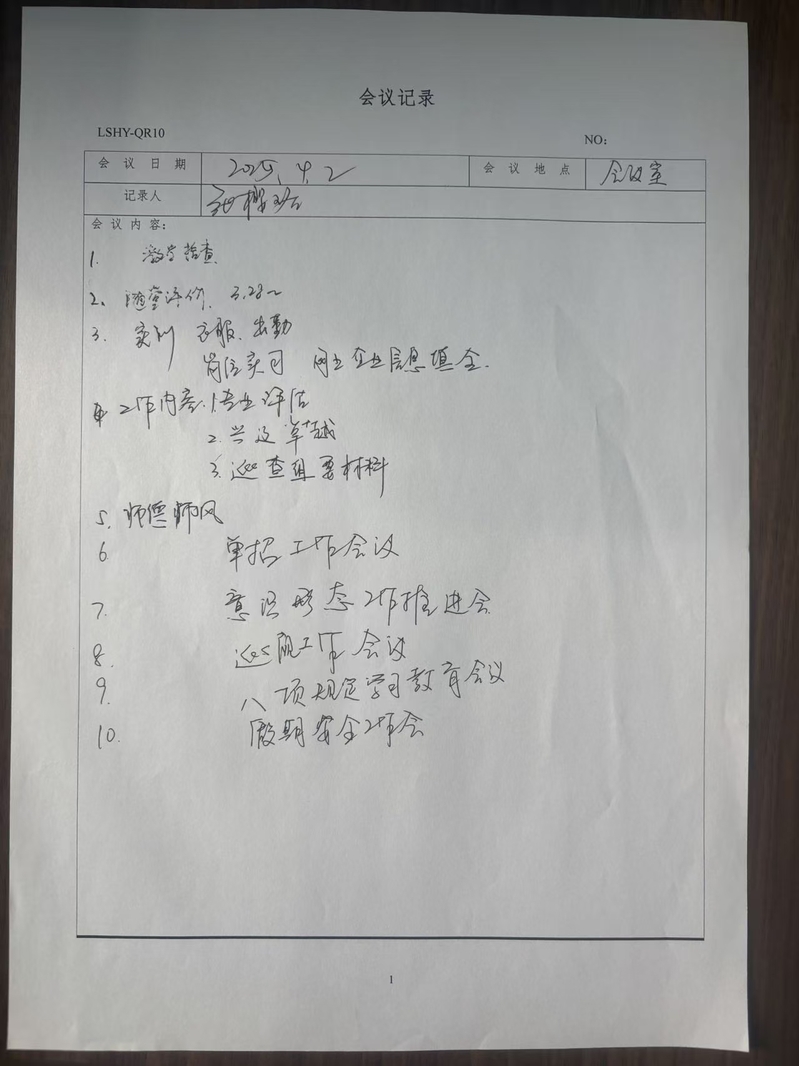 会议记录
LSHY-QR10 NO:
会议日期 2025.4.2 会议地点 会议室
记录人
会议内容:
1. 教学检查
2、随堂评价、3.28~
3. 实训 衣服、出勤
岗位实习 网上企业信息填全.
工作内容.1.专业评估
2.兴辽卓越
3.巡查组要材料
5. 师德师风
6 单招工作会议
7. 意识形态工作推进会
8. 巡视工作会议
9. 八项规定学习教育会议
10. 假期安全工作会
1